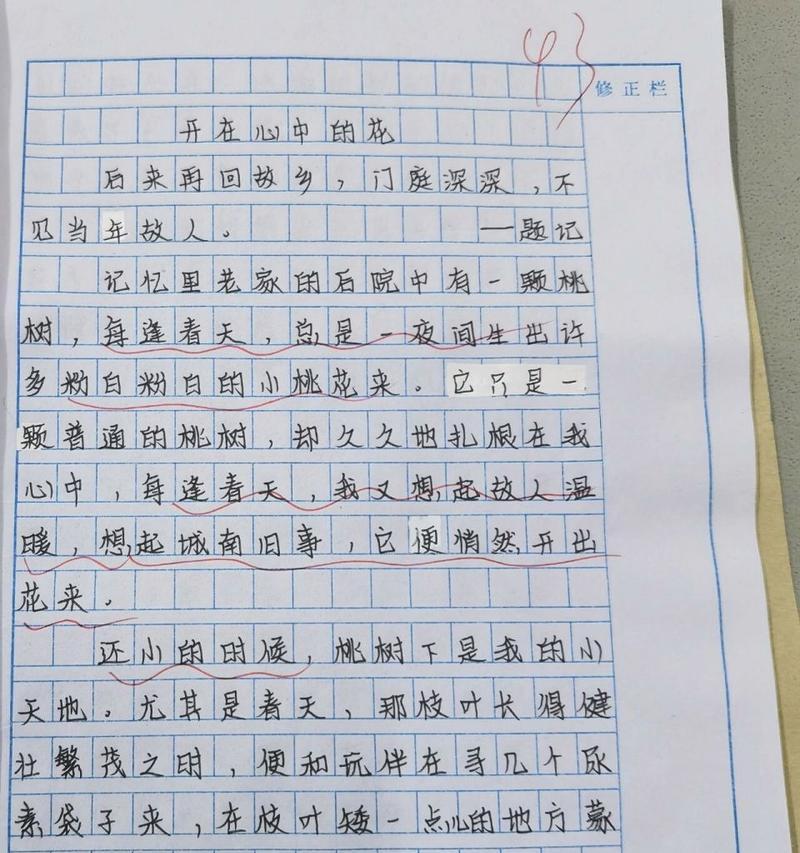 43
修正栏
开在心中的花
后来再回故乡，门庭深深，不
见当年故人。 ——题记
记忆里老家的后院中有一颗桃
树，每逢春天，总是一夜间生出许
多粉白粉白的小桃花来。它只是一
颗普通的桃树，却久久地扎根在我
心中，每逢春天，我又想起故人温
暖，想起城南旧事，它便悄然开出
花来。
还小的时候，桃树下是我的小
天地。尤其是春天，那枝叶长得健
壮繁茂之时，便和玩伴在寻几个尿
素袋子来，在枝叶矮一点儿的地方蒙